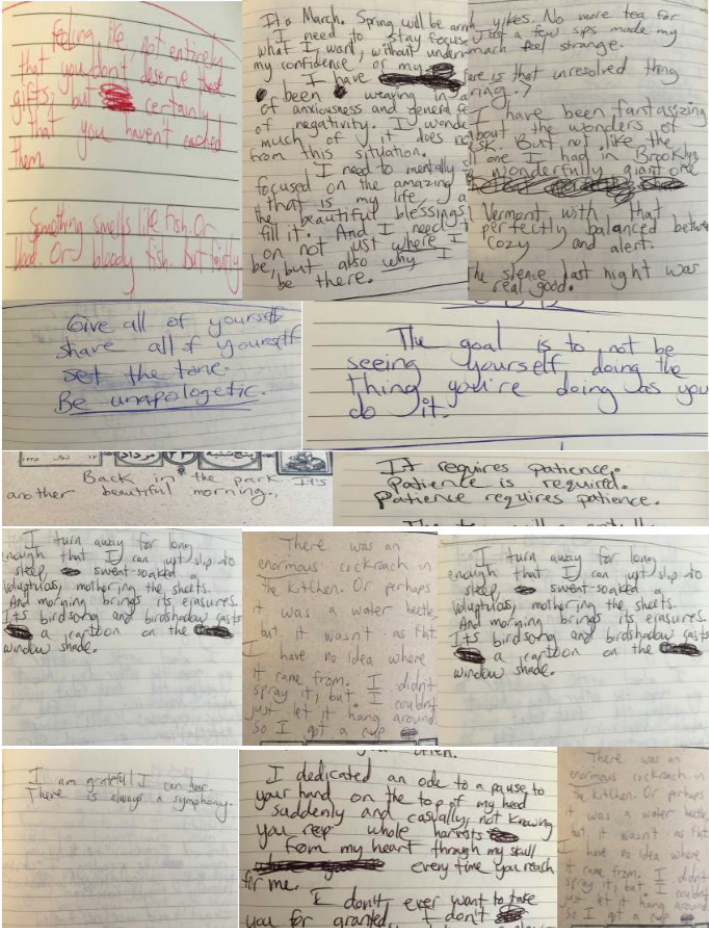 Feeling like, not entirely
that you don't deserve
gifts, but certainly
that you haven't cached
them.
Something smells like fish. Or
blood. Or bloody fish. But faintly
It's March. Spring will be
I need to stay focuse
what I want, without
my confidence or my
I have
been wearing in
of anxiousness and general
of negativity. I wonde
much of it does
from this situation.
I need to mentally
focused on the amazing
that is my life, a
the beautiful blessings
fill it. And I need
on not just where I
be, but also why I
be there.
yikes. No more tea for
Just a few sips made my
feel strange.
is that unresolved thing
I have been fantasizing
about the wonders of
But not like the
one I had in Brooklyn
wonderfully giant one
Vermont with that
perfectly balanced betwe
cozy and alert.
The silence last night was
real good.
Give all of yourself
share all of yourself
set the tone.
Be unapologetic.
The goal is to not be
seeing yourself doing the
thing you're doing as you
do it.
Back in the park It's
another beautiful morning.
It requires patience.
Patience is required.
Patience requires patience.
I turn away for long
enough that I can slip into
sleep, sweat-soaked a
voluptuous, mothering the sheets.
And morning brings its erasures.
Its birdsong and birdshadow casts
a cartoon on the
window shade.
There was an
enormous cockroach in
the kitchen. Or perhaps
it was a water beetle,
but it wasn't as flat.
I have no idea where
it came from. I didn't
spray it, but I couldn't
just let it hang around.
So I got a cup
I turn away for long
enough that I can slip into
sleep, sweat-soaked a
voluptuous, mothering the sheets.
And morning brings its erasures.
Its birdsong and birdshadow casts
a cartoon on the
window shade.
I am grateful I can hear.
There is always a symphony.
often.
I dedicated an ode to a pause, to
your hand on the top of my head
suddenly and casually, not knowing
you reap whole harvests
from my heart through my skull
every time you reach
for me.
I don't ever want to take
you for granted. I don't
There was an
enormous cockroach in
the kitchen. Or perhaps
it was a water beetle,
but it wasn't as flat.
I have no idea where
it came from. I didn't
spray it, but I couldn't
just let it hang around.
So I got a cup